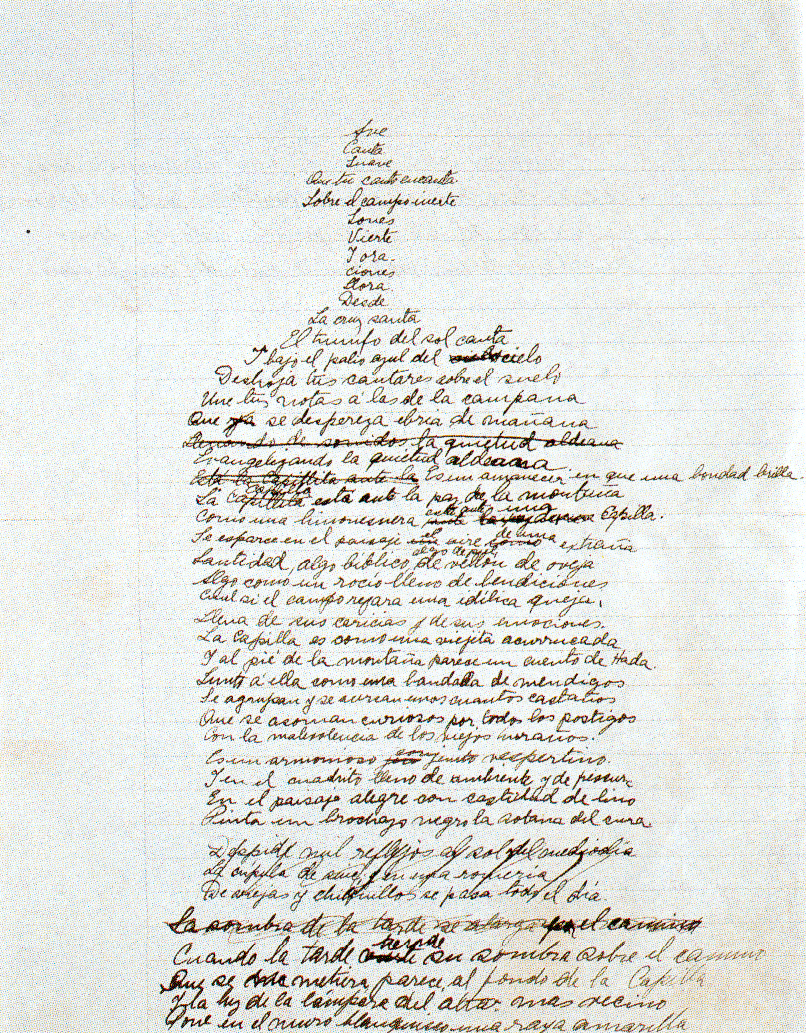 Ave
Canta
Suave
Que tu canto encanta
Sobre el campo inerte
Sones
Vierte
Y ora-
ciones
llora.
Desde
La cruz santa
El triunfo del sol canta
Y bajo el palio azul del cielo
Deshoja tus cantares sobre el suelo
Une tus notas a las de la campana
Que ya se despereza ebria de mañana
Llenando de sonidos la quietud aldeana
Evangelizando la quietud aldeana.
Está la Capillita ante la Es un amanecer en que una bondad brilla.
La Capillita está ante la paz de la montaña
Como una limosnera está ante una Capilla.
Se esparce en el paisaje el aire de una extraña
Santidad, algo bíblico, algo de piel de vellón de oveja
Algo como un rocío lleno de bendiciones
Cual si el campo rezara una idílica queja,
Llena de sus caricias y de sus emociones.
La Capilla es como una viejita acurrucada
Y al pié de la montaña parece un cuento de Hada.
Junto á ella como una bandada de mendigos
Se agrupan y se acercan unos cuantos castaños
Que se asoman curiosos por todos los postigos
Con la malevolencia de los viejos huraños.
Es un armonioso conjunto vespertino.
Y en el cuadrito lleno de ambiente y de frescura
En el paisaje alegre con castidad de lino
Pinta un brochazo negro la sotana del cura
Despide mil reflejos al sol del mediodía
La cúpula de y en una romería
De viejas y chiquillos se pasa todo el día
La sombra de la tarde se alarga por el camino
Cuando la tarde tiende su sombra sobre el camino
Que se metiera parece, al fondo de la Capilla
Y la luz de la lámpara del altar mas vecino
Pone en el muro blanquecino una raya amarilla